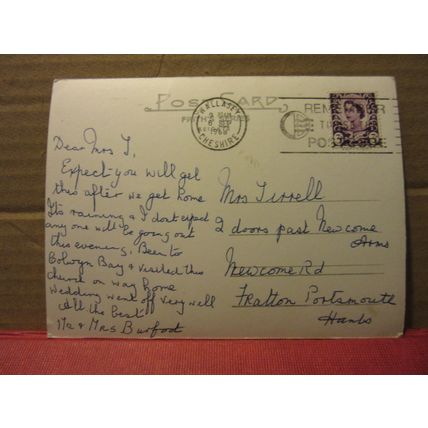 POST CARD
WALLASEY
CHESHIRE
1968
REMEMBER
TO
POSTCODE
Dear Mrs T,
Expect you will get
this after we get home
Its raining & I dont expect
any one will be going out
this evening. Been to
Colwyn Bay & visited this
church on way home
Wedding went off very well
All the Best
Mr & Mrs Burfoot
Mrs Tirrell
2 doors past Newcome
Arms
Newcome Rd
Fratton Portsmouth
Hants